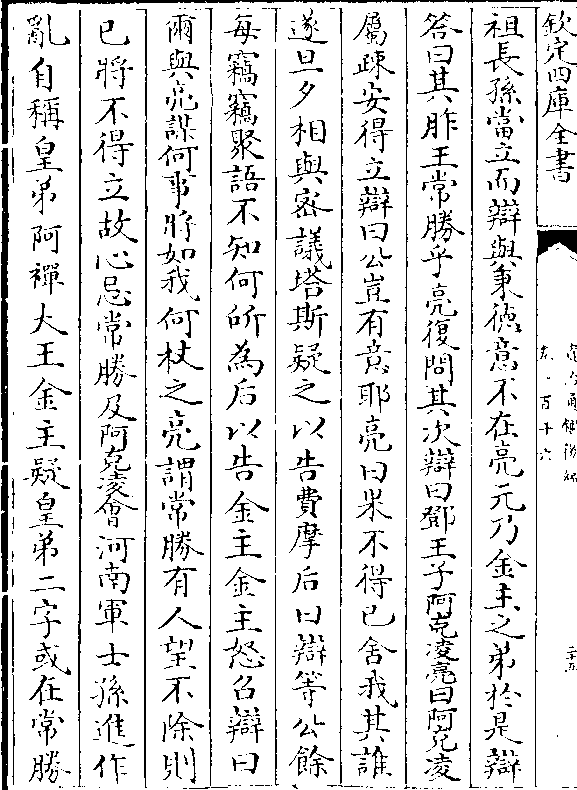 欽定四庫全書
祖長孫當立而辯與秉徳意不在亮元乃金主之弟於是辯
答曰其胙王常勝乎亮復問其次辯曰鄧王子阿克凌亮曰阿克凌
屬疎安得立辯曰公豈有意耶亮曰果不得已舍我其誰
遂旦夕相與密議塔斯疑之以告費摩后曰辯等公餘
每竊竊聚語不知何所為后以告金主金主怒召辯曰
爾與亮謀何事將如我何杖之亮謂常勝有人望不除則
已將不得立故心忌常勝及阿克凌會河南軍士孫進作
亂自稱皇弟阿禪大王金主疑皇弟二字或在常勝